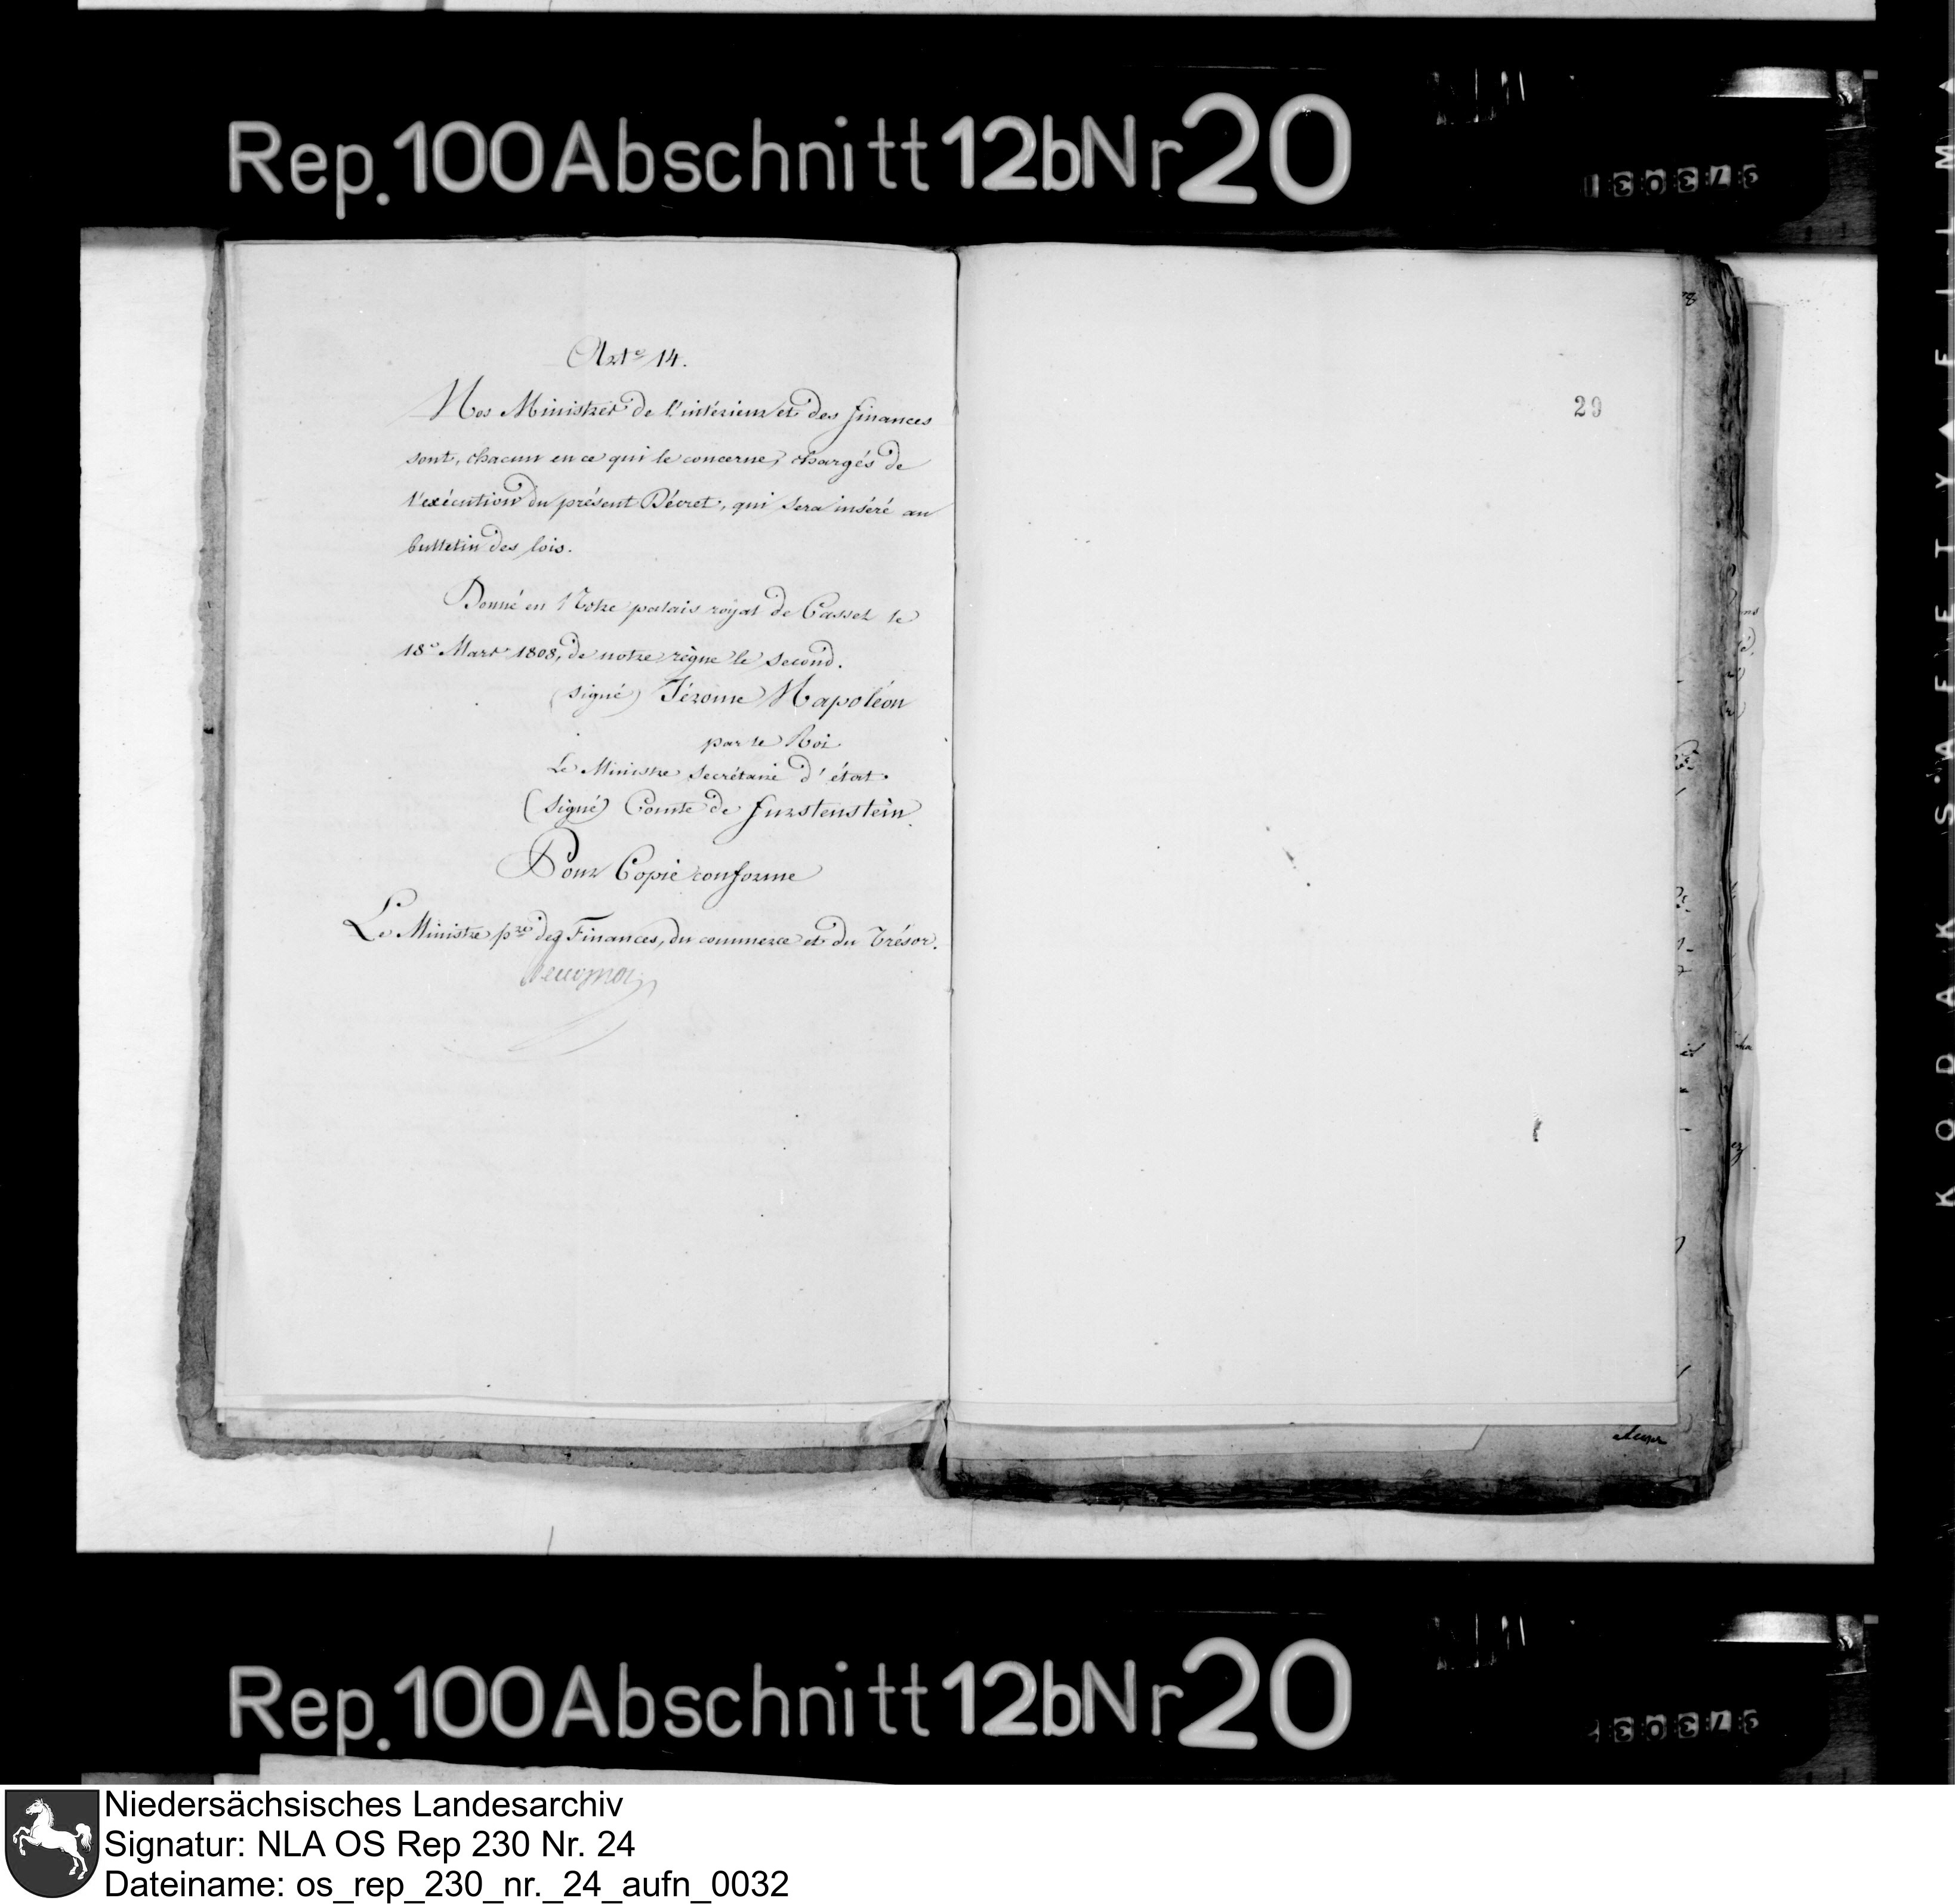 Rep. 100 Abschnitt 12b Nr 20
Arte 14.
Nos Ministres de l'intérieur et des finances
sont, chacun en ce qui le concerne, chargés de
l'exécution du présent Décret, qui sera inséré au
bulletin des lois.
Donné en Notre palais royal de Cassel le
18e Mars 1808, de notre règne le second.
(signé) Jérome Napoléon
par le Roi
Le Ministre secrétaire d'état.
(signé) Comte de furstenstein.
Pour Copie conforme
Le Ministre pre des Finances, du commerce et du Trésor.
29
KODAK SAFETY FILM
Rep. 100 Abschnitt 12b Nr 20
Niedersächsisches Landesarchiv
Signatur: NLA OS Rep 230 Nr. 24
Dateiname: os_rep_230_nr._24_aufn_0032